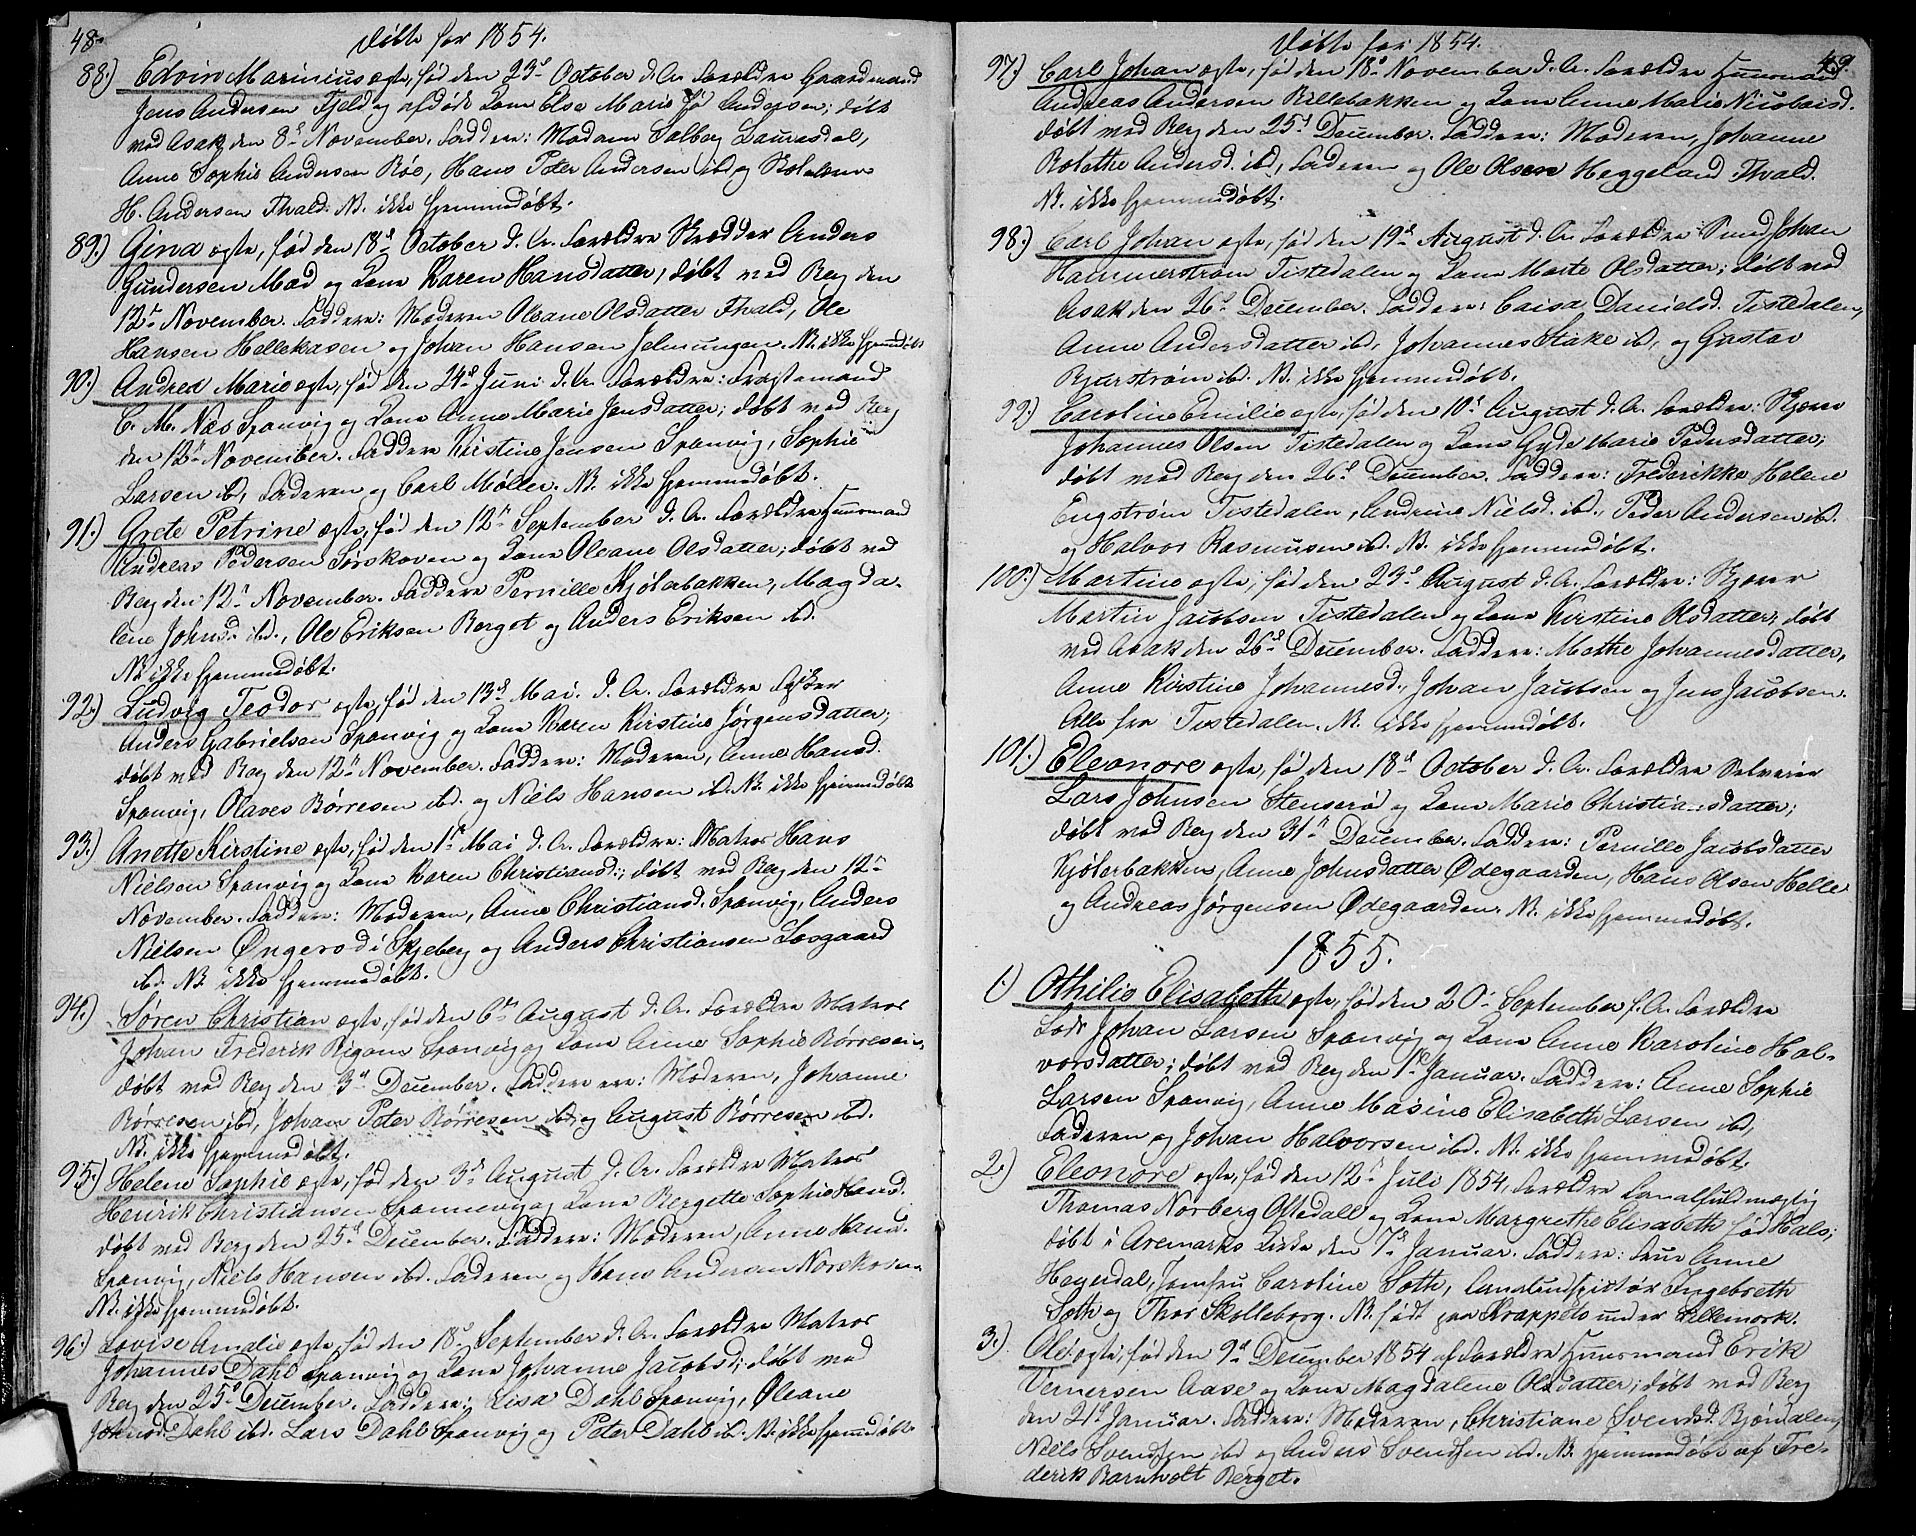 48.
Döbte for 1854.
88.) Edvin Marinius ægte, fød den 23d October d. A. Forældre Gaardmand
Jens Andersen Fjeld og afdøde Kone Else Marie fød Andersen; døbt
ved Asak den 8d November. Faddere: Madam Solberg Lauvesdal,
Anne Sophie Andersen Röe, Hans Peter Andersen ibd og Skolelærer
H. Andersen Thvald. NB. ikke hjemmedøbt.
89.) Gina ægte, fød den 18d October d. A. Forældre Skrædder Anders
Gundersen Moe og Kone Karen Hansdatter, døbt ved Berg den
12te November. Faddere: Moderen Oleane Olsdatter Thvald, Ole
Hansen Hellekasen og Johan Hansen Jelmungen. NB. ikke hjemmedøbt
90.) Andrea Marie ægte, fød den 24d Juni d. A. Forældre: Fragtemand
C. M. Næs Sponvig og Kone Anne Marie Jensdatter; døbt ved Berg
den 12te November. Faddere Kirstine Jensen Sponvig, Sophie
Larsen ibd, Faderen og Carl Møller. NB. ikke hjemmedøbt.
91.) Grete Petrine ægte, fød den 12te September d. A. Forældre Huusmand
Andreas Pedersen Sørskoven og Kone Oleane Olsdatter; døbt ved
Berg den 12te November. Faddere Pernille Kjölerbakken, Magda-
lene Johnsd. ibd., Ole Eriksen Berget og Anders Eriksen ibd.
NB. ikke hjemmedøbt.
92.) Ludvig Teodor ægte, fød den 13d Mai d. A. Forældre Fisker
Anders Gabrielsen Sponvig og Kone Karen Kirstine Jørgensdatter;
døbt ved Berg den 12te November. Faddere: Moderen, Anne Hansd.
Sponvig, Olaves Børresen ibd. og Niels Hansen ibd. NB. ikke hjemmedøbt
93.) Anette Kirstine ægte, fød den 1ste Mai d. A. Forældre: Matros Hans
Nielsen Sponvig og Kone Karen Christiansd., døbt ved Berg den 12te
November. Faddere: Moderen, Anne Christiansd. Sponvig, Anders
Nielsen Öngerød i Skjeberg og Anders Christiansen Løsgaard
ibd. NB. ikke hjemmedøbt.
94.) Søren Christian ægte, fød den 6te August d. A. Forældre Matros
Johan Frederik Sponvig og Kone Anne Sophie Børresen,
døbt ved Berg den 3d December. Faddere ere: Moderen, Johanne
Børresen ibd, Johan Peter Børresen ibd, og August Børresen ibd.
NB. ikke hjemmedøbt.
95.) Helene Sophie ægte, fød den 3d August d. A. Forældre Matros
Henrik Christiansen Sponnevig og Kone Bergette Sophie Hansd.
døbt ved Berg den 25d December. Faddere: Moderen, Anne Hansd.
Sponvig, Niels Hansen ibd. Faderen og Hans Andersen Norskoven.
NB. ikke hjemmedøbt.
96.) Lovise Amalie ægte, fød den 18d September d. A. Forældre Matros
Johannes Dahl Sponvig og Kone Johanne Jacobsd; døbt ved
Berg den 25d December. Faddere: Lisa Dahl Sponvig, Oleane
Johnsd. Dahl ibd. Lars Dahl Sponvig og Peter Dahl ibd. NB. ikke hjemmedøbt
Döbte for 1854.
49.
97.) Carl Johan ægte, fød den 18d November d. A. Forældre Huusmand
Andreas Andersen Billebakken og Kone Anne Marie Nicolaisd.
døbt ved Berg den 25d December. Faddere: Moderen, Johanne
Bolethe Andersd. ibd, Faderen og Ole Olsen Heggeland Thvald.
NB. ikke hjemmedøbt.
98.) Carl Johan ægte, fød den 19d August d. A. Forældre Smed Johan
Hammerstrøm Tistedalen og Kone Marte Olsdatter; døbt ved
Asak den 26d December. Faddere: Caisa Danielsd. Tistedalen,
Anne Andersdatter ibd, Johannes Stake ibd, og Gustav
Bjurstrøm ibd. NB. ikke hjemmedøbt.
99.) Caroline Emilie ægte, fød den 10d August d. A. Forældre: Skjærer
Johannes Olsen Tistedalen og Kone Gyde Marie Pedersdatter;
døbt ved Berg den 26d December. Faddere: Frederikke Helene
Engstrøm Tistedalen, Andrine Nielsd. ibd., Peder Andersen ibd.
og Halvor Rasmusen ibd. NB. ikke hjemmedøbt.
100.) Martine ægte, fød den 23d August d. A. Forældre: Skjærer
Martin Jacobsen Tistedalen og Kone Kirstine Olsdatter, døbt
ved Asak den 26d December. Faddere: Mathe Johannesdatter,
Anne Kirstine Johannesd., Johan Jacobsen og Jens Jacobsen.
Alle fra Tistedalen. NB. ikke hjemmedøbt.
101.) Eleonore ægte, fød den 18d October d. A. Forældre Selveier
Lars Johnsen Stenserød og Kone Marie Christiansdatter;
døbt ved Berg den 31te December. Faddere: Pernille Jacobsdatter
Kjölerbakken, Anne Johnsdatter Ödegaarden, Hans Olsen Helle
og Andreas Jørgensen Ödegaarden. NB. ikke hjemmedøbt.
1855.
1.) Othilie Elisabeth ægte, fød den 20de September f. A. Forældre
Lods Johan Larsen Sponvig og Kone Anne Karoline Hal-
vorsdatter; døbt ved Berg den 1ste Januar. Faddere: Anne Sophie
Larsen Sponvig, Anne Masine Elisabeth Larsen ibd,
Faderen og Johan Halvorsen ibd. NB. ikke hjemmedøbt.
2.) Eleonore ægte, fød den 12te Juli 1854, Forældre Canalfuldmægtig
Thomas Norberg Oftedall og Kone Margrethe Elisabeth fød Hals;
døbt i Aremarks Kirke den 7de Januar. Faddere: Frue Anne
Hegerdal, Jomfru Caroline Soth, Canalinspektör Ingebreth
Soth og Thor Skolleborg. NB. født paa Krappeto under Lillemork.
3.) Ole ægte, fød den 9d December 1854 af Forældre Huusmand Erik
Vernersen Aase og Kone Magdalene Olsdatter; døbt ved Berg
den 21d Januar. Faddere: Moderen, Christiane Svendsd. Björndalen,
Niels Svendsen ibd og Anders Svendsen ibd. NB. hjemmedøbt af Fre-
derik Barnholt Berget.